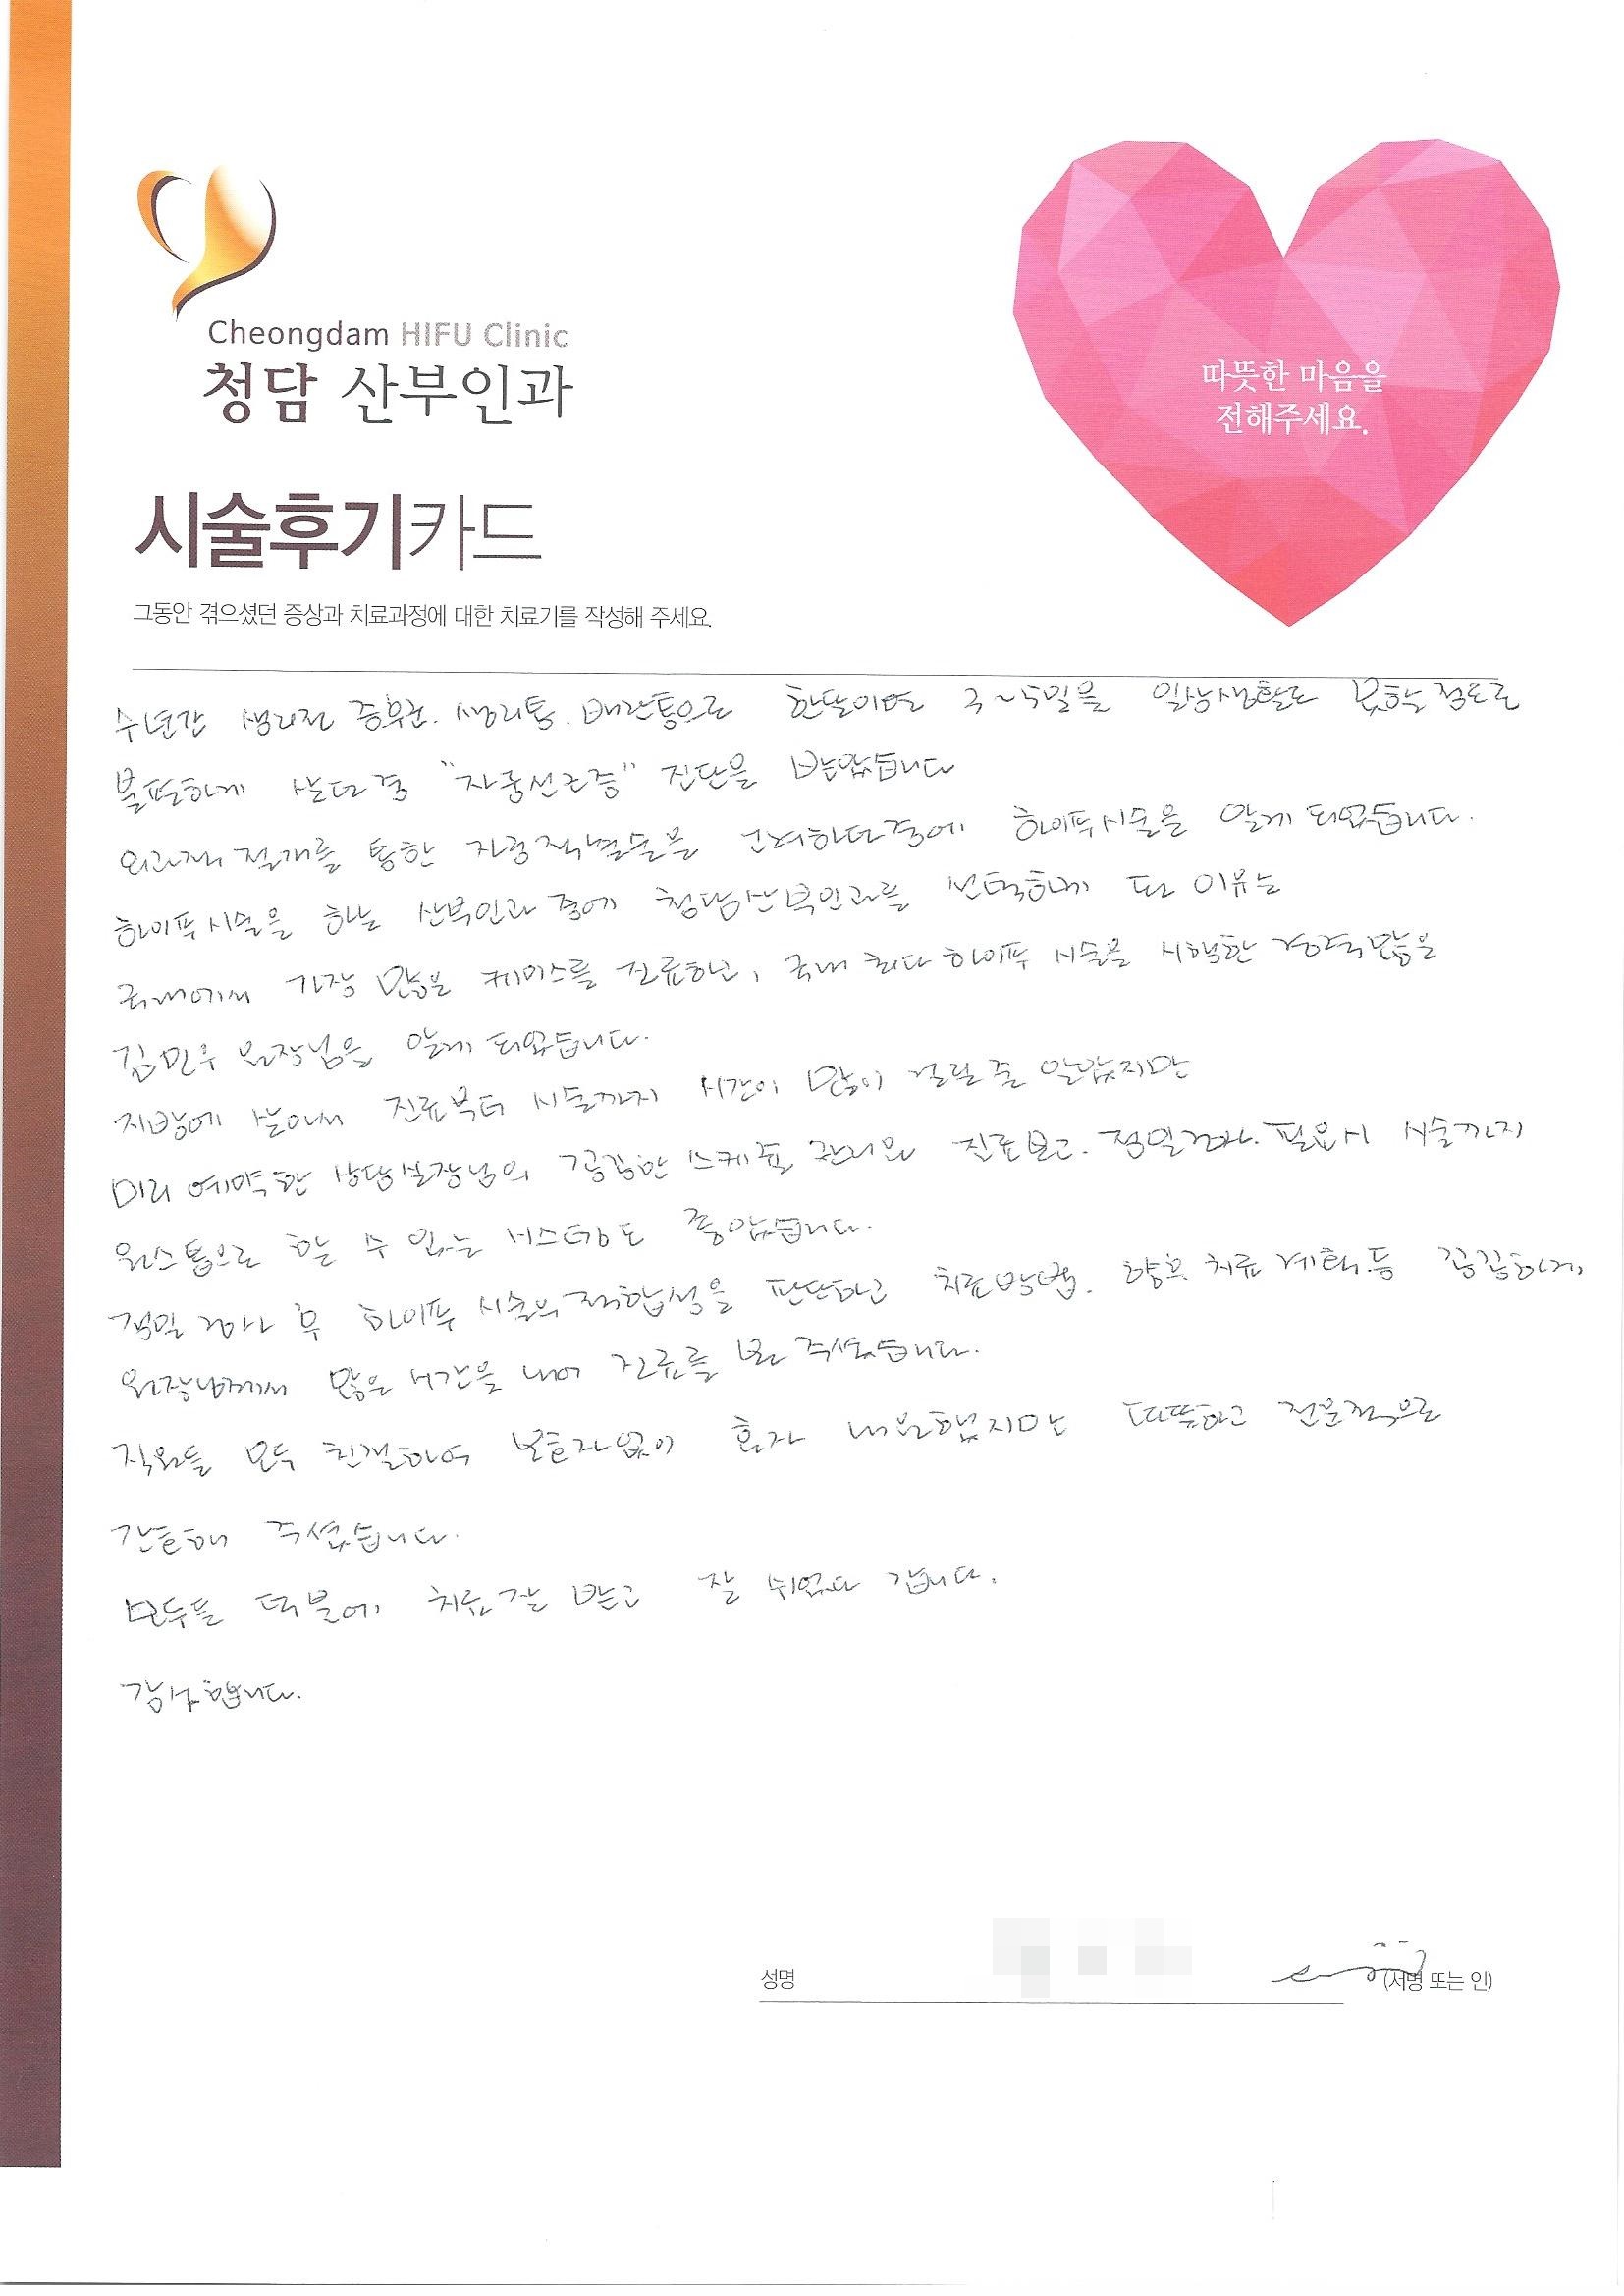 Cheongdam HIFU Clinic
청담 산부인과
따뜻한 마음을
전해주세요.
시술후기카드
그동안 겪으셨던 증상과 치료과정에 대한 치료기를 작성해 주세요.
수년간 생리전 증후군. 생리통. 배란통으로 한달이면 3~5일을 일상생활도 못할 정도로
불편하게 살던 중 "자궁선근증" 진단을 받았습니다
외과적 절개를 통한 자궁적출술을 고려하던 중에 하이푸시술을 알게 되었습니다.
하이푸시술을 하는 산부인과 중에 청담산부인과를 선택하게 된 이유는
국내에서 가장 많은 케이스를 진료하고, 국내 최다 하이푸 시술을 시행한 경력많은
김민우 원장님을 알게 되었습니다.
지방에 살아서 진료부터 시술까지 시간이 많이 걸릴 줄 알았지만
미리 예약한 상담실장님의 꼼꼼한 스케쥴 관리와 진료보고. 정밀검사. 필요시 시술까지
원스톱으로 할 수 있는 시스템도 좋았습니다.
정밀 검사 후 하이푸 시술의 적합성을 판단하고 치료방법. 향후 치료 계획.등 꼼꼼하게,
원장님께서 많은 시간을 내어 진료를 봐 주셨습니다.
직원들 모두 친절하여 보호자없이 혼자 내원했지만 따뜻하고 전문적으로
간호해 주셨습니다.
모두들 덕분에 치료 잘 받고 잘 쉬었다 갑니다.
감사합니다.
성명 (서명 또는 인)